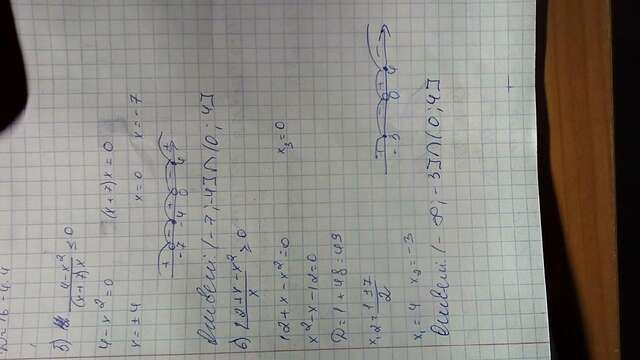 б) (4-x²)/((x+7)x) ≤ 0
4-x²=0 (x+7)x=0
x=±4 x=0 x=-7
-7 -4 0 4
Ответ: (-7;-4]∩(0;4]
в) (12+x-x²)/x ≥ 0
12+x-x²=0 x₃=0
x²-x-12=0
D=1+48=49
x₁,₂=(1±7)/2
x₁=4 x₂=-3
-3 0 4
Ответ: (-∞;-3]∩(0;4]